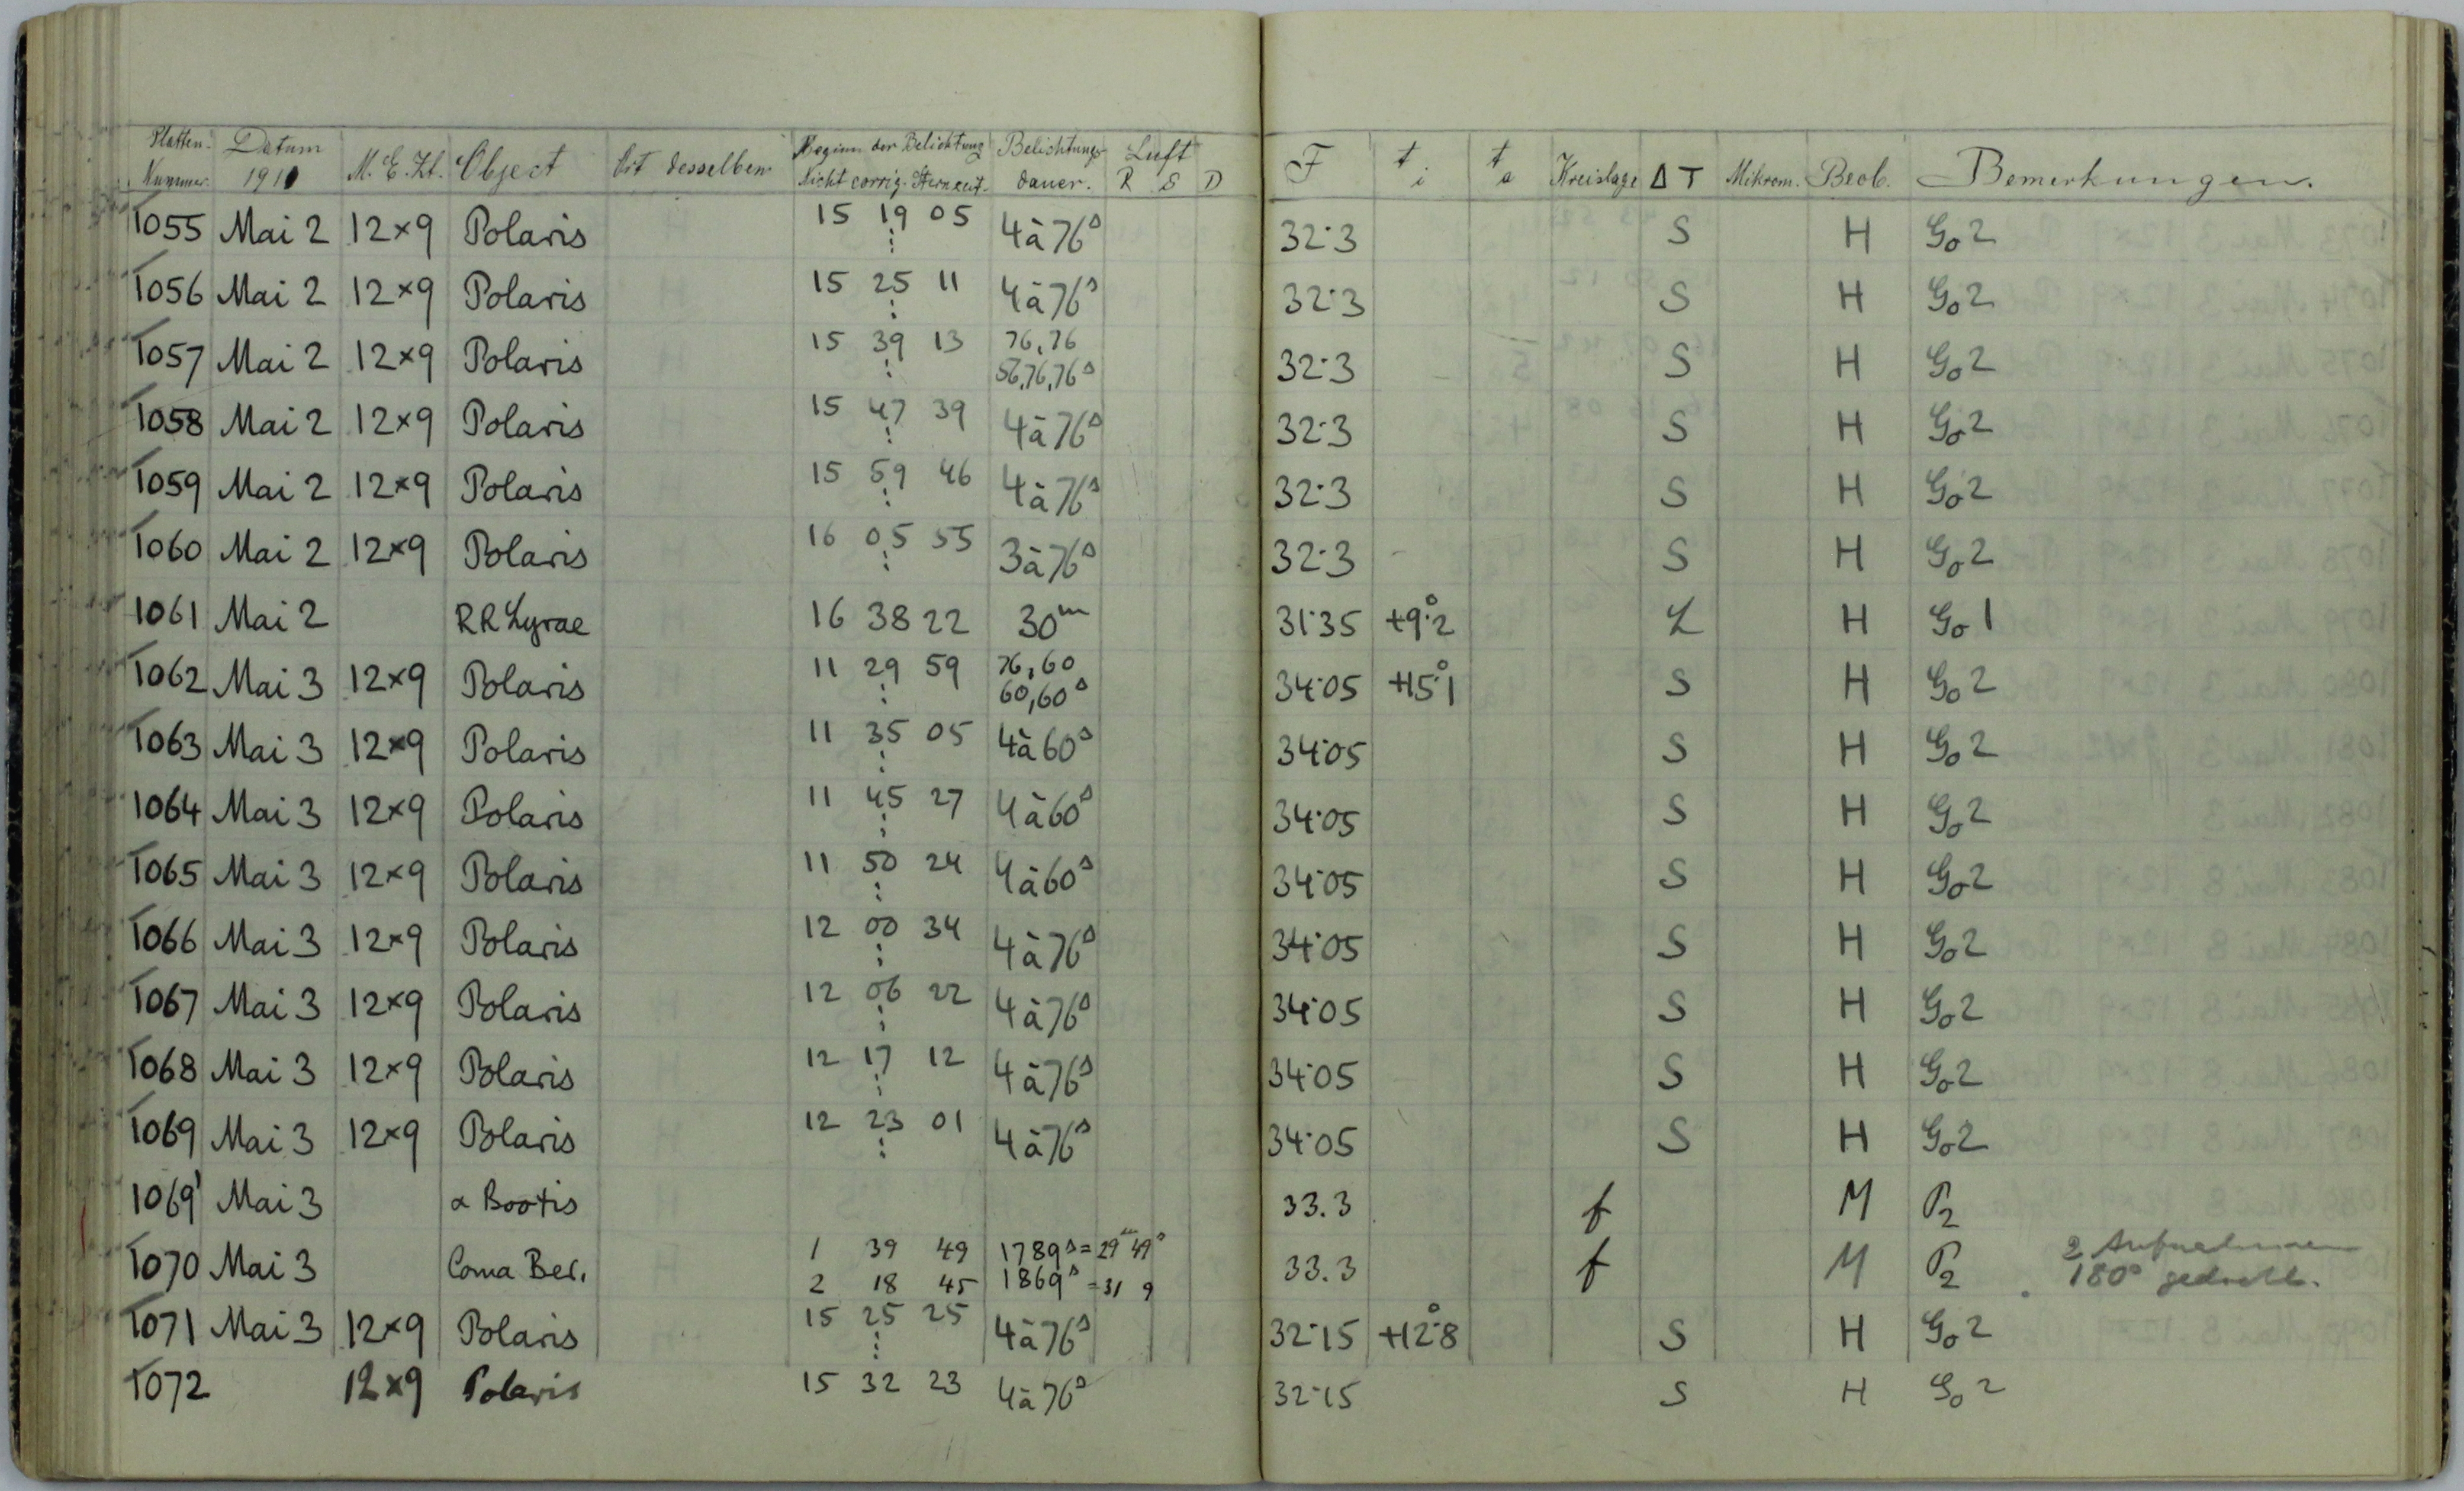 Platten- Nummer. Datum 1910 M. E. Zt. Object Ort desselben Beginn der Belichtung Nicht corrig. Sternzeit. Belichtungs dauer. Luft R S D F t i t a Kreislage Δ T Mikrom. Beob. Bemerkungen.
1055 Mai 2 12×9 Polaris 15 19 05 4à76s 32·3 S H Go2
1056 Mai 2 12×9 Polaris 15 25 11 4à76s 32·3 S H Go2
1057 Mai 2 12×9 Polaris 15 39 13 76,76 56,76,76s 32·3 S H Go2
1058 Mai 2 12×9 Polaris 15 47 39 4à76s 32·3 S H Go2
1059 Mai 2 12×9 Polaris 15 59 46 4à76s 32·3 S H Go2
1060 Mai 2 12×9 Polaris 16 05 55 3à76s 32·3 S H Go2
1061 Mai 2 RR Lyrae 16 38 22 30m 31·35 +9°·2 L H Go1
1062 Mai 3 12×9 Polaris 11 29 59 76,60 60,60s 34·05 +15°·1 S H Go2
1063 Mai 3 12×9 Polaris 11 35 05 4à60s 34·05 S H Go2
1064 Mai 3 12×9 Polaris 11 45 27 4à60s 34·05 S H Go2
1065 Mai 3 12×9 Polaris 11 50 24 4à60s 34·05 S H Go2
1066 Mai 3 12×9 Polaris 12 00 34 4à76s 34·05 S H Go2
1067 Mai 3 12×9 Polaris 12 06 22 4à76s 34·05 S H Go2
1068 Mai 3 12×9 Polaris 12 17 12 4à76s 34·05 S H Go2
1069 Mai 3 12×9 Polaris 12 23 01 4à76s 34·05 S H Go2
1069' Mai 3 α Bootis 33.3 f M P2
1070 Mai 3 Coma Ber. 1 39 49 1789s = 29m 49s 33.3 f M P2 2 Aufnahmen
2 18 45 1869s = 31 9 180° gedreht.
1071 Mai 3 12×9 Polaris 15 25 25 4à76s 32·15 +12°·8 S H Go2
1072 12×9 Polaris 15 32 23 4à76s 32·15 S H Go2